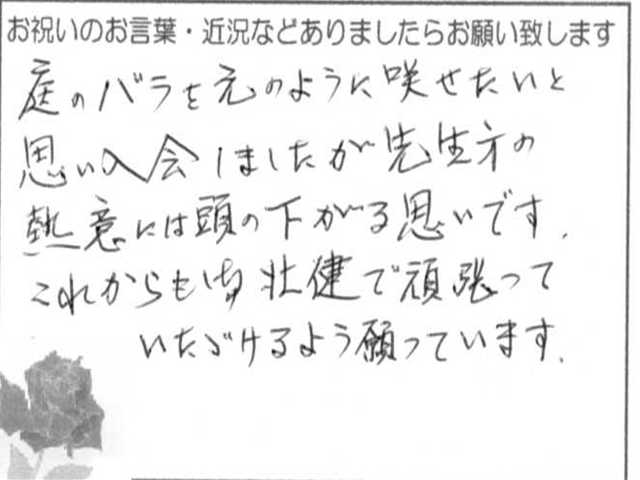 お祝いのお言葉・近況などありましたらお願い致します
庭のバラを元のように咲せたいと
思い入会しましたが先生方の
熱意には頭の下がる思いです.
これからも御壮健で頑張って
いたゞけるよう願っています.